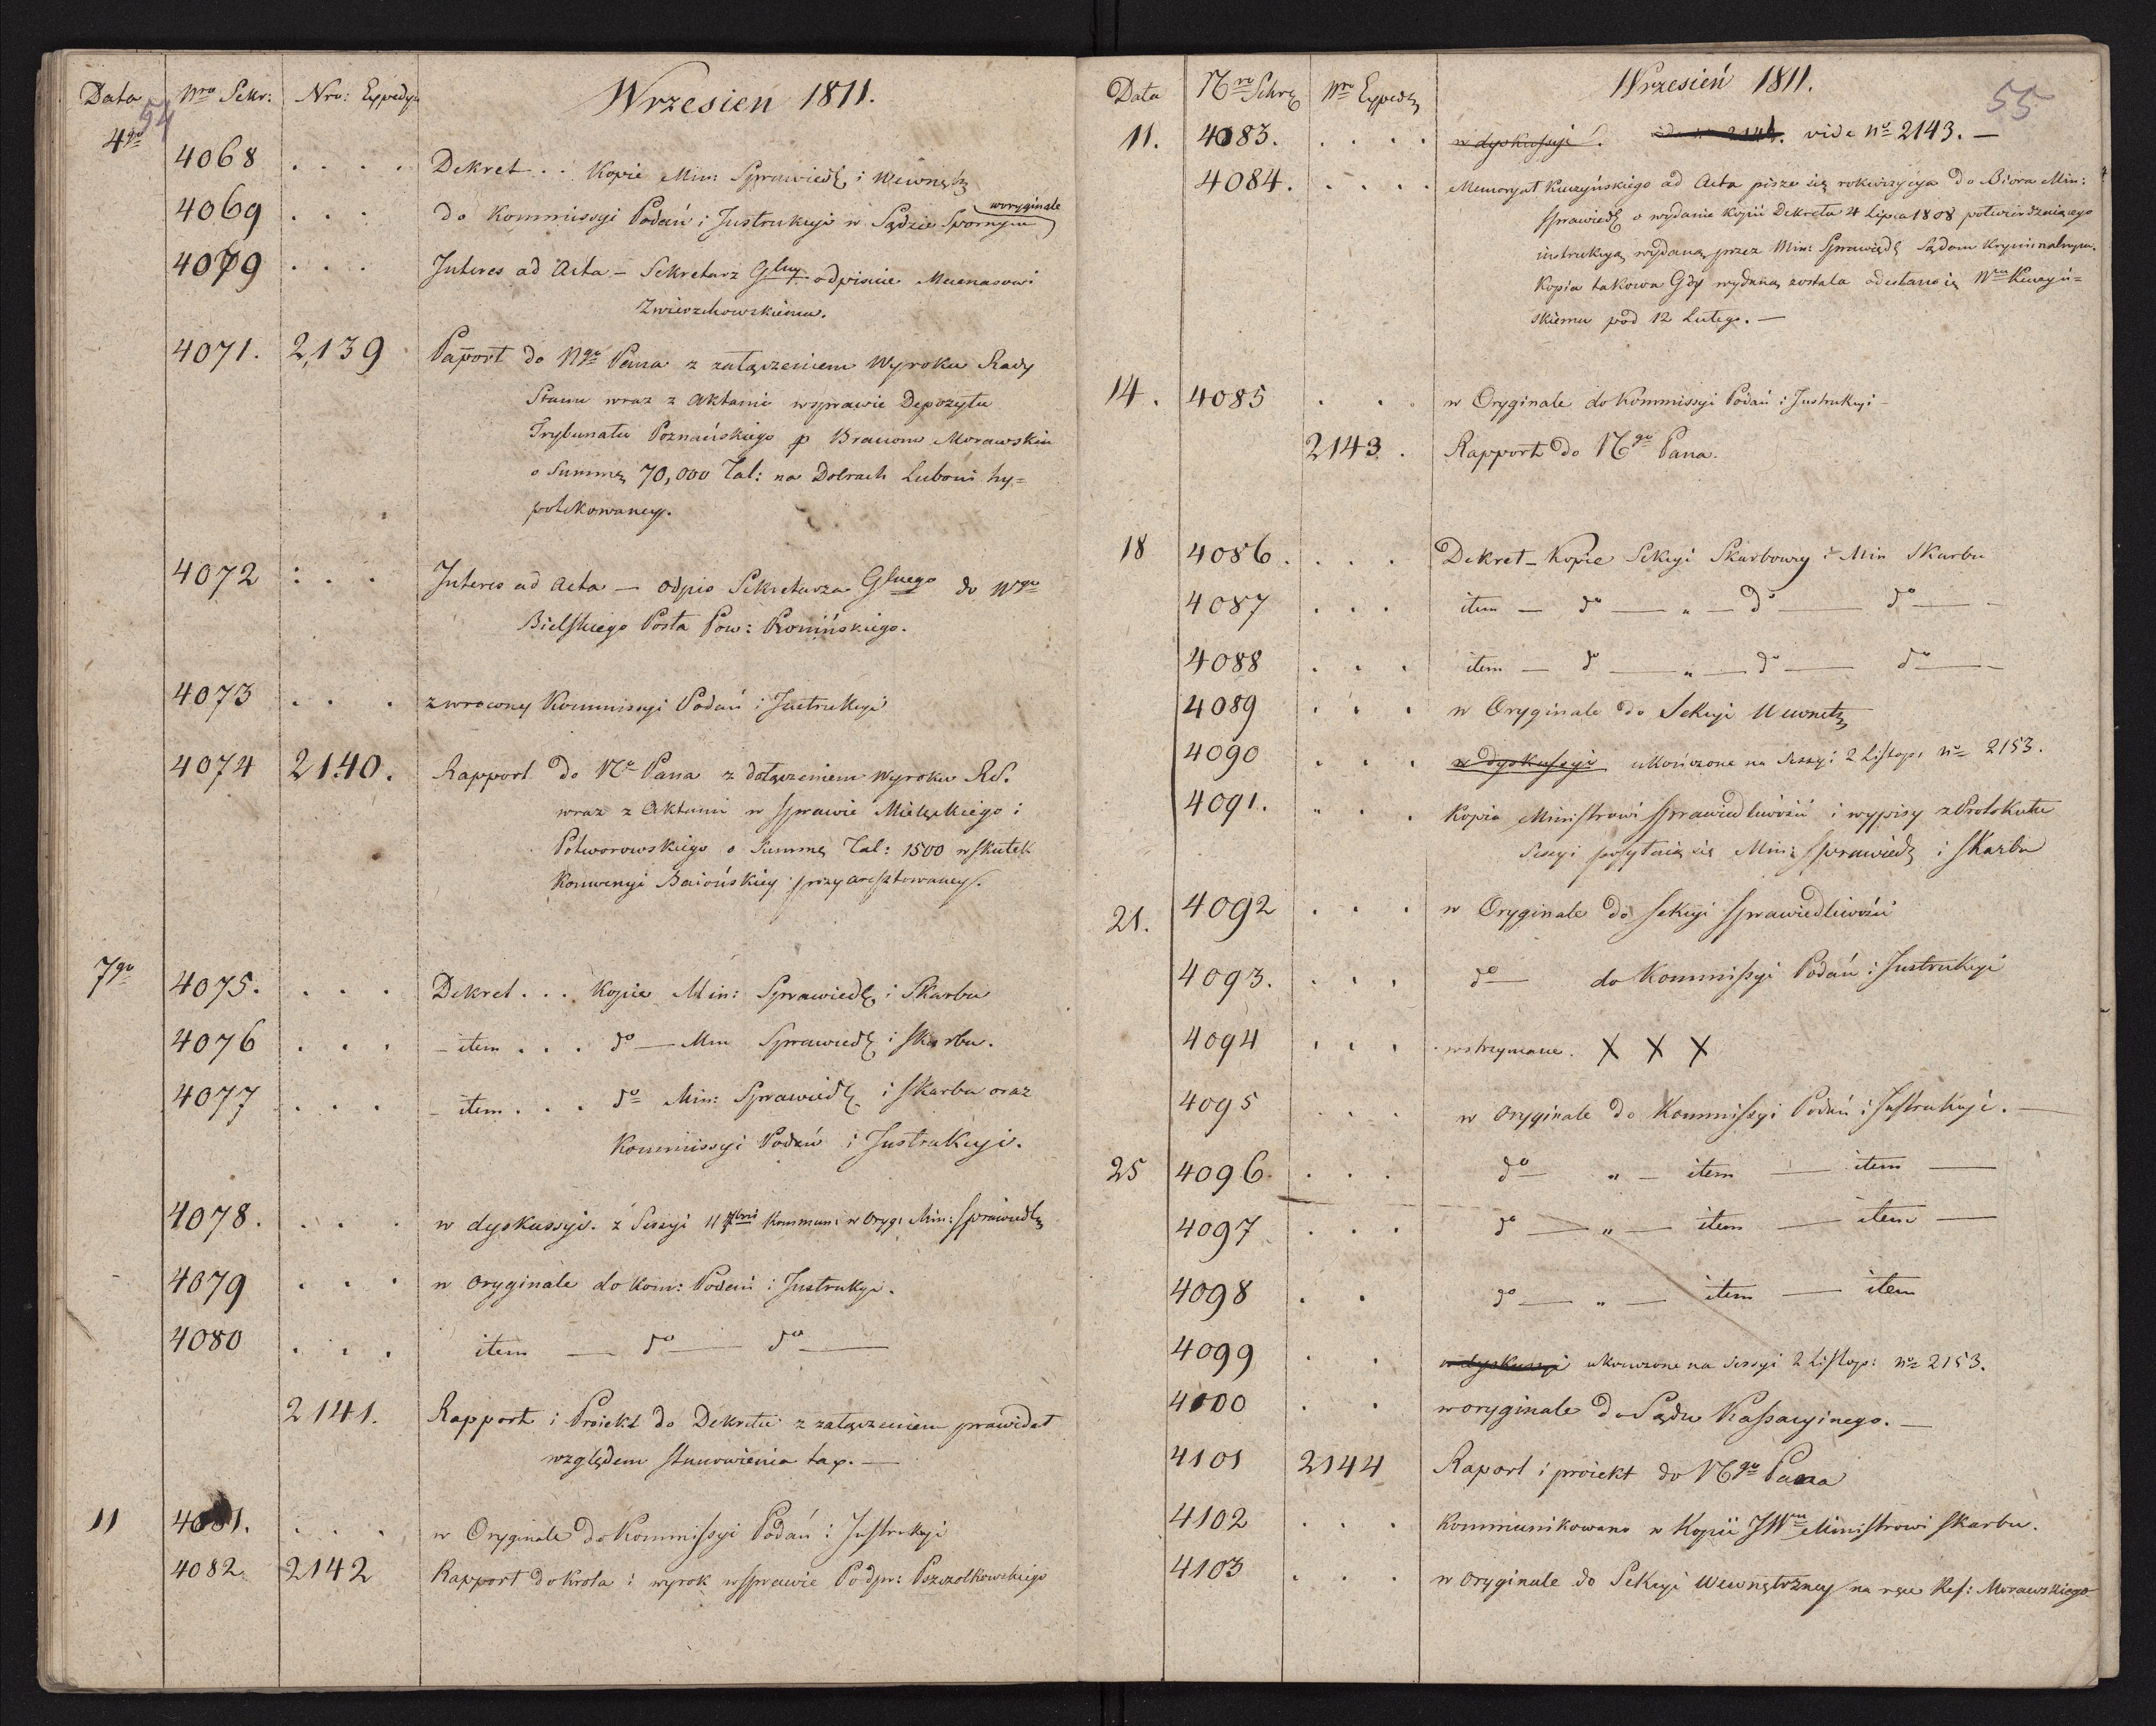 Data Nro Sekr: Nro: Expedy: Wrzesien 1811.
54
4go
4068 . . . . Dekret . . Kopie Min: Sprawiedł i Wewnętz
4069 . . . do Kommissyi Podań i Instrukcyi w Sądzie Spornym woryginale
4079 . . . Interes ad Acta – Sekretarz Głny odpisuie Mecenasowi
Zwierzchowskiemu.
4071. 2139 Paport do Ngo Pana z załączeniem Wyroku Rady
Stanu wraz z aktami wsprawie Depozytu
Trybunału Poznańskiego p Braciom Morawskim
o Summę 70,000 Tal: na Dobrach Luboni hy=
potekowaney.
4072 : . . Interes ad Acta — odpis Sekretarza Głnego do Wgo
Bielskiego Posła Pow: Konińskiego.
4073 . . . zwrocony Kommissyi Podań i Instrukcyi
4074 2140. Rapport do No Pana z dołączeniem Wyroku RS.
wraz z Aktami w sprawie Mielęckiego i
Potworowskiego o Summę Tal: 1500 wskutek
Konwencyi Baiońskiey przyaresztowaney.
7go 4075. . . . Dekret . . . Kopie Min: Sprawiedł i Skarbu
4076 . . . – item . . . do — Min Sprawiedł i Skarbu.
4077 . . . – item . . . do Min: Sprawiedł i Skarbu oraz
Kommissyi Podań i Instrukcyi.
4078. . . . w dyskussyi. z Sessyi 11 7bris Kommun: w Oryg: Min: Sprawiedł
4079 . . . w oryginale do Kom: Podań i Instrukcyi.
4080 . . . item — do — do —
2141. Rapport i Proiekt do Dekretu z załączeniem prawideł
względem stanowienia tax. —
11 4081. . . . w Oryginale do Kommissyi Podań i Instrukcyi
4082. 2142 Rapport do Krola i wyrok wsprawie Podpr: Pszczolkowskiego
Data Nro Sekre Nro Expedy Wrzesień 1811.
55
11. 4083. . . . . w dyskussyi. vide no 2143. —
4084. . . . . Memoryał Kuczyńskiego ad Acta pisze się rekwizycya do Biora Min:
Sprawiedł o wydanie kopii Dekretu 4 Lipca 1808 potwierdzaiącego
instrukcyą wydaną przez Min: Sprawiedł Sądom Kryminalnym.
Kopia takowa Gdy wydaną została odesłano ią Wmu Kuczyń=
skiemu pod 12 Lutego. —
14. 4085 . . w Oryginale do Kommissyi Podań i Instrukcyi –
2143. . Rapport do Ngo Pana.
18 4086. . . . Dekret – Kopie Sekcyi Skarbowey i Min Skarbu
4087 . . . item — do — „ — do — do — –
4088 . . . item — do — „ — do — do — –
4089 . . . w Oryginale do Sekcyi Wewnętz
4090 . . . w dyskussyi ukończone na Sessyi 2 Listop: no 2153.
4091. „ . . Kopia Ministrowi Sprawiedliwości i wypisy z Protokułu
Sessyi posyłaią się Min: Sprawiedł i Skarbu
21. 4092 . . . w Oryginale do Sekcyi Sprawiedliwości
4093. . . . do — do Kommissyi Podań i Instrukcyi
4094 . . . . wstrzymane. X X X
4095 . . . w oryginale do Kommissyi Podań i Instrukcyi. —
25 4096. . . . do — „ — item — item —
4097 . . . do — „ — item — item —
4098 . . do — „ — item — item
4099 . . w dyskussyi ukończone na Sessyi 2 Listop: no 2153.
4100 . . w oryginale do Sądu Kassacyinego. —
4101 2144 Raport i proiekt do Ngo Pana
4102 . . . Kommunikowano w Kopii JWmu Ministrowi Skarbu.
4103 . . . w oryginale do Sekcyi Wewnętrzney na ręce Ref: Morawskiego